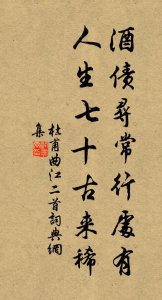 酒债尋常行處有
人生七十古来稀
杜甫曲江二首詞典網
集